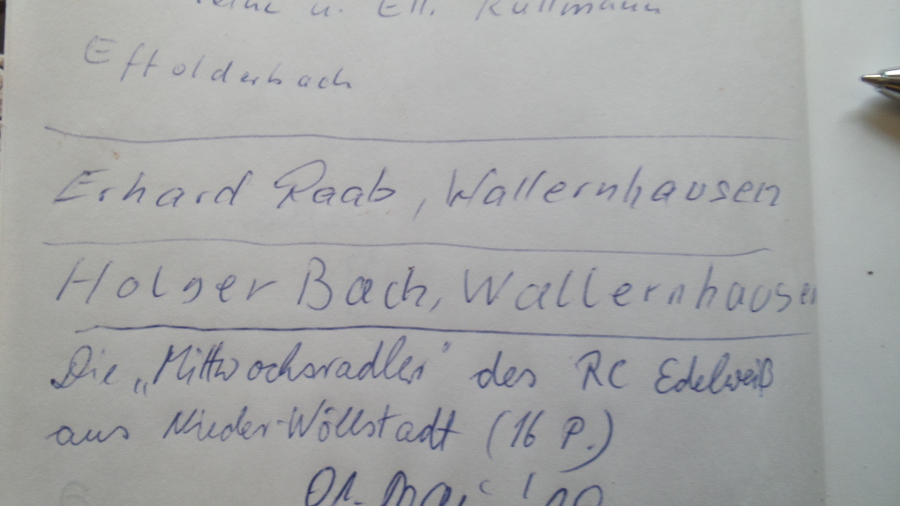 u. Ell. Kullmann
Effolderbach
Erhard Raab, Wallernhausen
Holger Bach, Wallernhausen
Die „Mittwochsradler" des RC Edelweiß
aus Nieder-Wöllstadt (16 P.)
01. Mai '